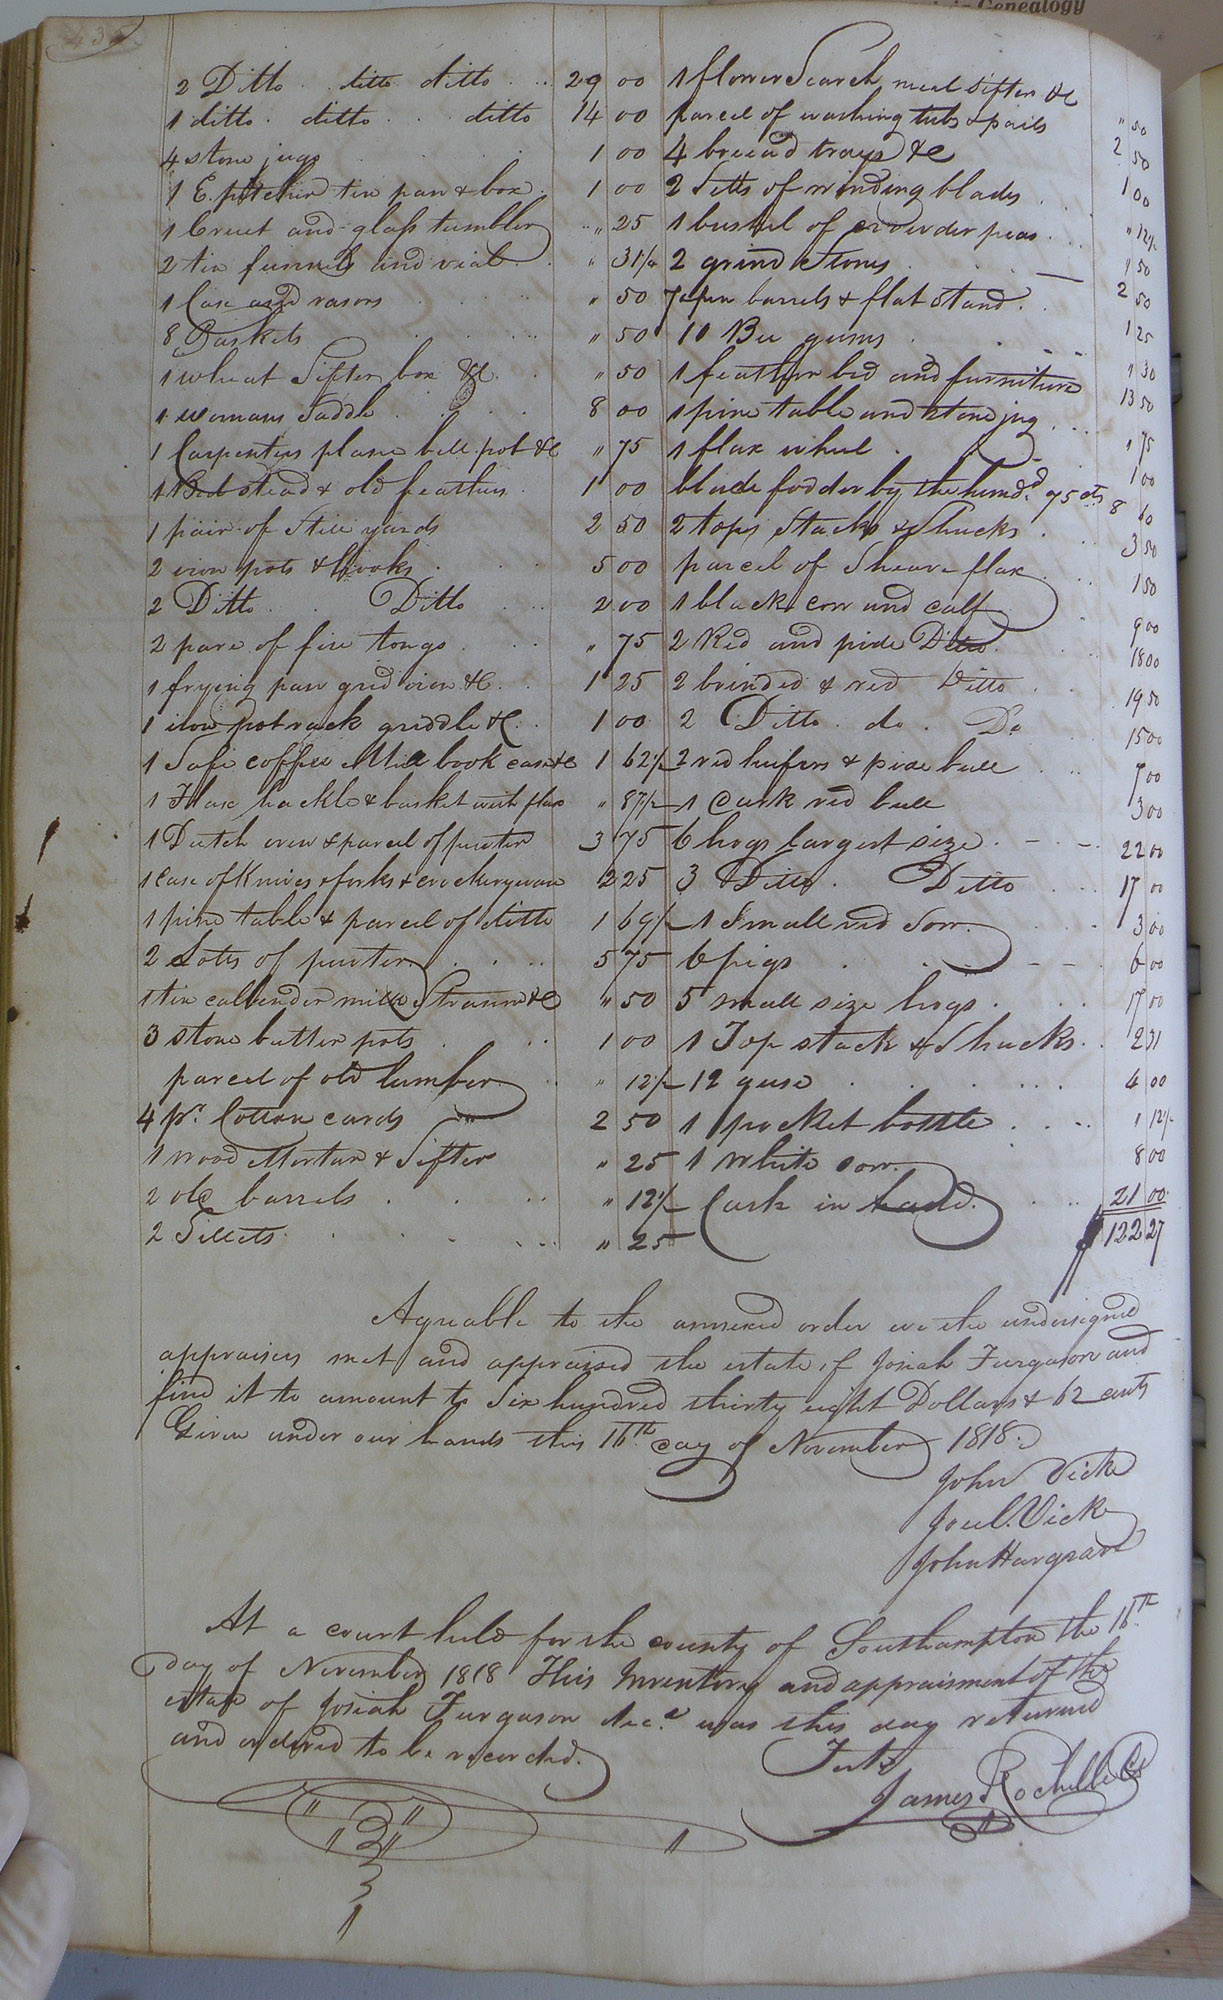 Genealogy
2 Ditto ditto ditto 29 00
1 ditto ditto ditto 14 00
4 stone jugs 1 00
1 E. pitcher tin pan & box 1 00
1 Cruet and glass tumbler " 25
2 tin funnels and vial " 31 1/4
1 Case and rasors " 50
8 Baskets " 50
1 wheat Sifter box &C " 50
1 womans Saddle 8 00
1 Carpenters plane bell pot &C " 75
1 Bedstead & old feathers 1 00
1 pair of Still yards 2 50
2 iron pots & hooks 5 00
2 Ditto Ditto 2 00
2 pare of fire tongs " 75
1 frying pan grid iron &C 1 25
1 iron pot rack griddle &C 1 00
1 Safe coffee Mill book case &C 1 62 1/2
1 Flax hackle & basket with flax " 87 1/2
1 Dutch oven & parcel of pewter 3 75
1 case of Knives & forks & crockeryware 2 25
1 pine table & parcel of ditto 1 69 1/2
2 Lots of pewter 5 75
1 tin cullender milk Strainer &C " 50
3 stone butter pots 1 00
parcel of old lumber " 12 1/2
4 pr. Cotton cards 2 50
1 wood Mortar & Sifter " 25
2 old barrels " 12 1/2
2 Sillets " 25
1 flower Search meal sifter &C " 50
parcel of washing tubs & pails 2 50
4 breead trays &C 1 00
2 Setts of winding blades " 12 1/2
1 bushel of crowder peas " 50
2 grind Stones 2 50
7 open barrels & flat Stand 1 25
10 Bee gums " 30
1 feathern bed and furniture 13 50
1 pine table and stone jug " 75
1 flax wheel 1 00
blade fodder by the hund.d 75 cts 8 60
2 tops Stacks & Shucks 3 50
parcel of Sheave flax 1 50
1 black cow and calf 9 00
2 Red and pide Ditto 18 00
2 brinded & red Ditto 19 50
2 Ditto do. Do 15 00
2 red heifers & pide bull 7 00
1 dark red bull 3 00
6 hogs largest size 22 00
3 Ditto Ditto 17 00
1 Small red Sow 3 00
6 pigs 6 00
5 small size hogs 17 00
1 Top stack & Shucks 2 31
12 geese 4 00
1 pocket bottle " 12 1/2
1 white sow 8 00
Cash in hand 21 00
122 27
Agreable to the annexed order we the undersigned
appraisers met and appraised the estate of Josiah Furgason and
find it to amount to Six hundred thirty eight Dollars & 62 cents
Given under our hands this 16th day of November 1818
John Vick
Joel Vick
John Hargrave
At a court held for the county of Southampton the 16th
day of November 1818 This Inventory and appraisment of the
estate of Josiah Furgason dec.d was this day returned
and ordered to be recorded.
Teste
James Rochelle Cl